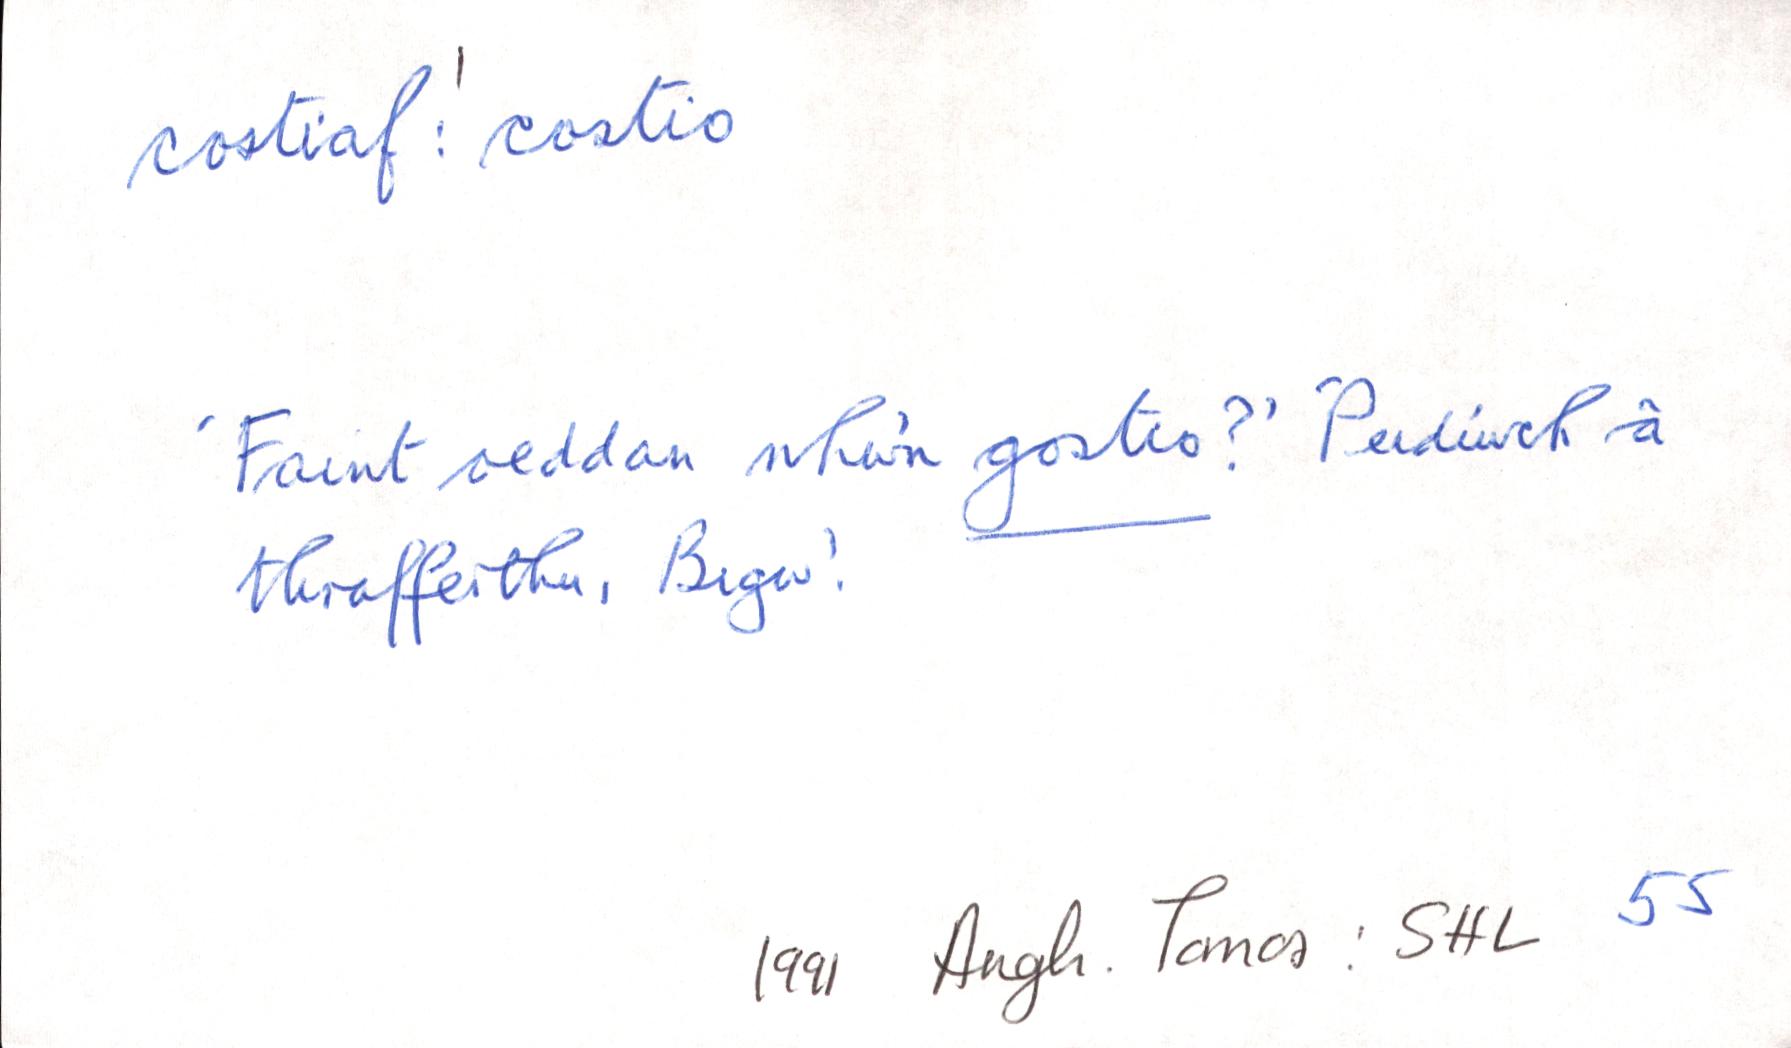 costiaf¹: costio
'Faint oeddan nhw'n gostio?' 'Peidiwch â
thrafferthu, Begw'.
1991 Angh. Tomos: SHL 55